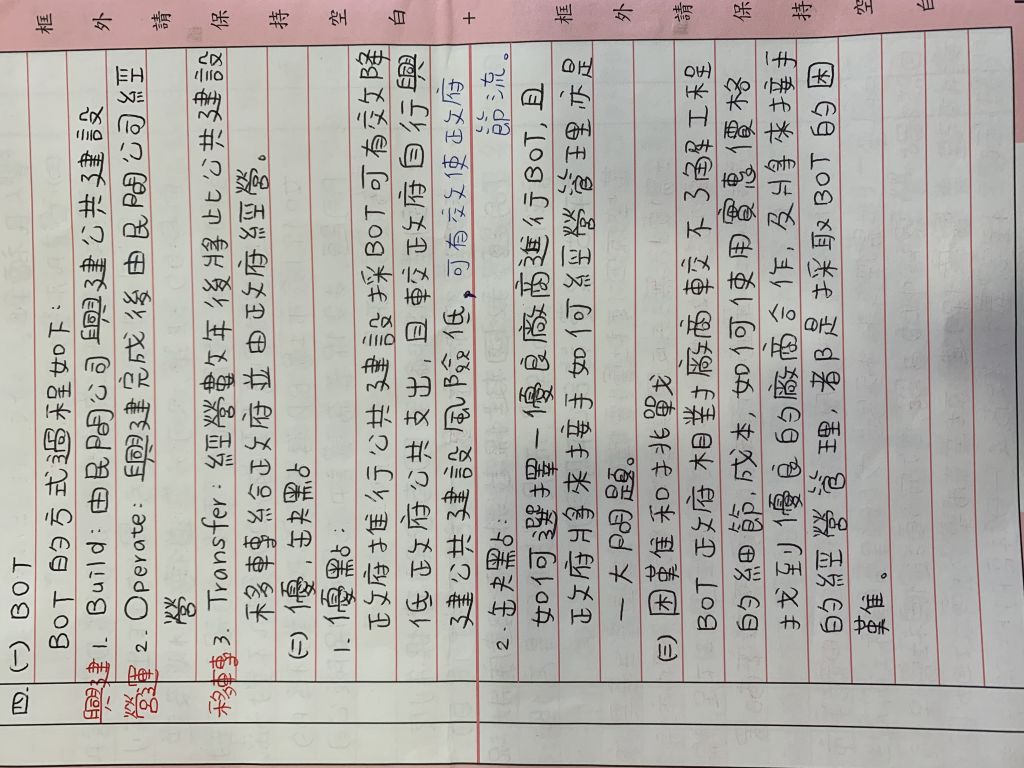 框外請保持空白
框外請保持空白
四.(一) BOT
BOT的方式過程如下:
興建 1. Build: 由民間公司興建公共建設
營運 2. Operate: 興建完成後由民間公司經
營。
移轉 3. Transfer: 經營數年後將此公共建設
移轉給政府並由政府經營。
(二) 優,缺點
1.優點:
政府推行公共建設採BOT可有效降
低政府公共支出,且較政府自行興
建公共建設風險低,可有效使政府
節流。
2.缺點:
如何選擇一優良廠商進行BOT,且
政府將來接手如何經營管理亦是
一大問題。
(三) 困難和挑戰
BOT政府相對廠商較不了解工程
的細節,成本,如何使用實惠價格
找到優良的廠商合作,及將來接手
的經營管理,都是採取BOT的困
難。